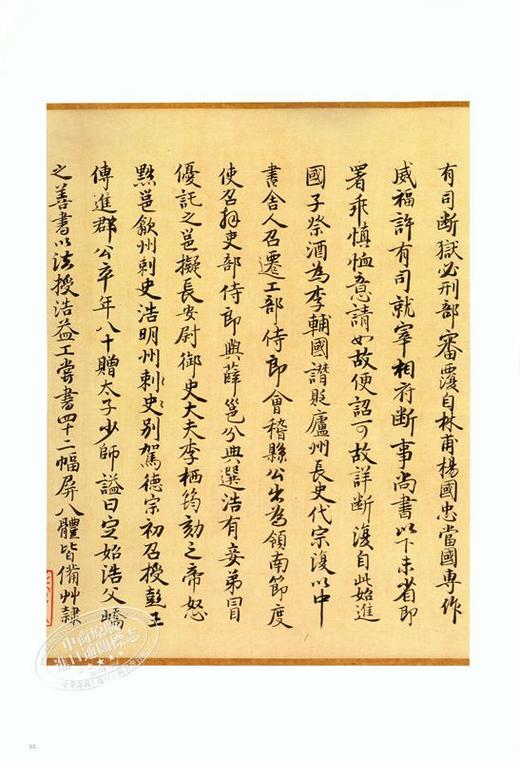 有司断獄必刑部審覆自林甫楊國忠當國專作
威福許有司就宰相府断事尚書以下未省即
署乖慎恤意請如故便詔可故詳断復自此始進
國子祭酒為李輔國譖貶廬州長史代宗復以中
書舍人召遷工部侍郎會稽縣公出為領南節度
使召拜吏部侍郎與薛邕分典選浩有妾弟冒
優託之邕擬長安尉御史大夫李栖筠劾之帝怒
黜邕歙州刺史浩明州刺史別駕德宗初召授彭王
傅進郡公卒年八十贈太子少師謚曰定始浩父嶠
之善書以法授浩益工嘗書四十二幅屏八體皆備艸隷
中商原版
进口商图标志
53